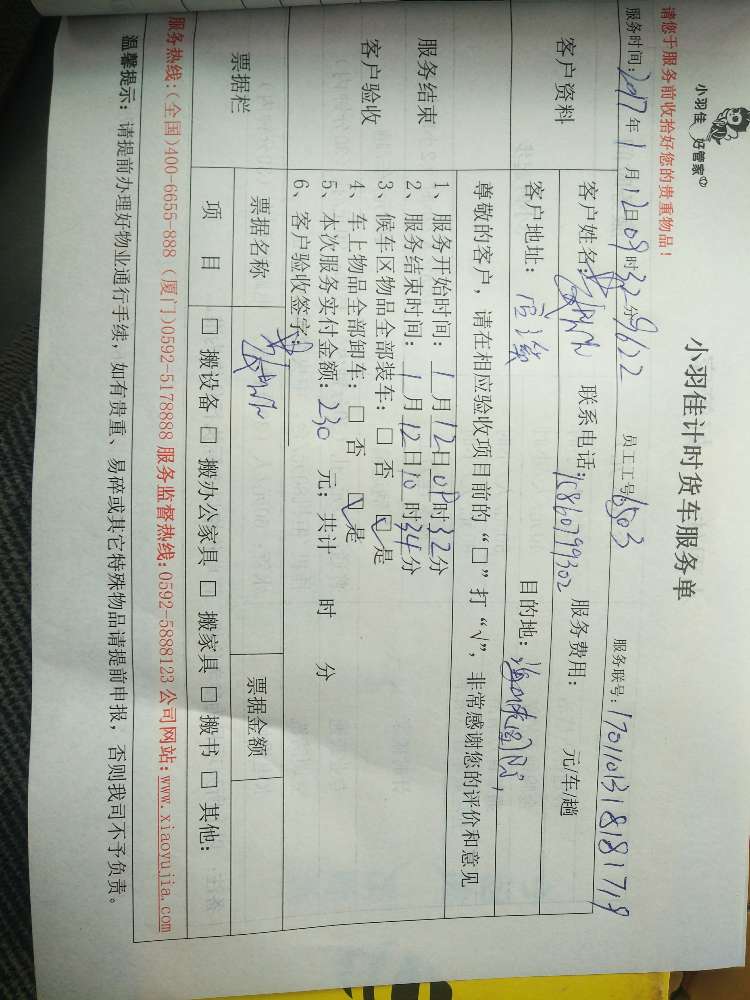 小羽佳 好管家
小羽佳计时货车服务单
请您于服务前收拾好您的贵重物品！
服务时间：2017年1月12日09时32分 9622 员工工号 6503 服务联号：1701101318181718
客户资料
客户姓名： 联系电话： 服务费用： 元/车/趟
客户地址： 目的地：
尊敬的客户，请在相应验收项目前的“□”打“√”，非常感谢您的评价和意见
服务结束
客户验收
1、服务开始时间：1月12日09时32分
2、服务结束时间：1月12日10时34分
3、候车区物品全部装车：□ 否 ☑ 是
4、车上物品全部卸车：□ 否 ☑ 是
5、本次服务实付金额：230 元；共计 时 分
6、客户验收签字：
票据栏
票据名称 票据金额
项 目 □ 搬设备 □ 搬办公家具 □ 搬家具 □ 搬书 □ 其他：
服务热线：(全国)400-6655-888 (厦门)0592-5178888 服务监督热线：0592-5888123 公司网站：www.xiaoyujia.com
温馨提示：请提前办理好物业通行手续，如有贵重、易碎或其它特殊物品请提前申报，否则我司不予负责。